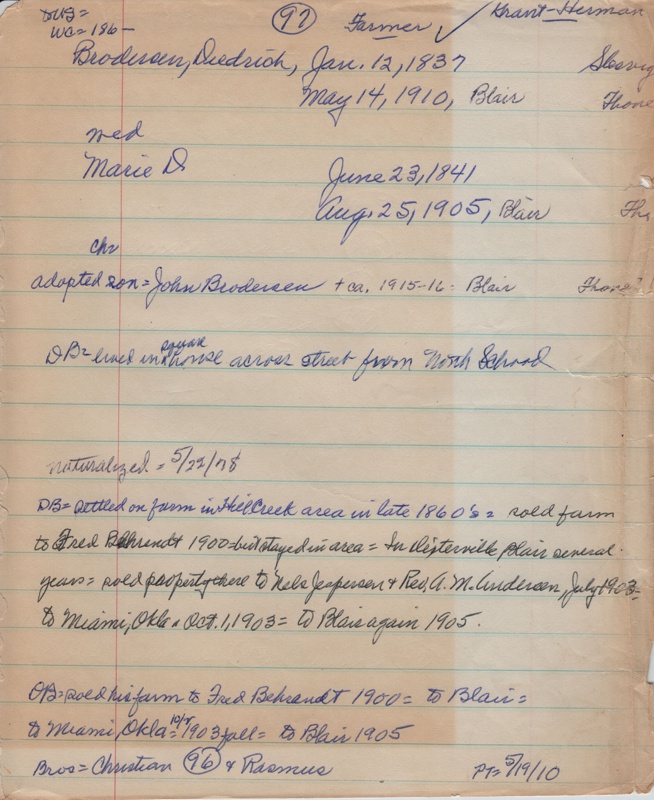 DUS=
WC=186-
(97)
Farmer ✓
Kravit-Herman
Brodersen, Diedrich, Jan. 12, 1837 Slesvig
May 14, 1910, Blair Thone
wed
Marie D. June 23, 1841
Aug. 25, 1905, Blair Tho
chr
adopted son = John Brodersen + ca. 1915-16 - Blair Thone?
DB = lived in square house across street from North School
naturalized = 5/22/78
DB = settled on farm in Hill Creek area in late 1860's = sold farm
to Fred Behrendt 1900 - but stayed in area = In Blair several
years = sold property there to Nels Jeppersen + Rev. A. M. Andersen, July 1903 =
to Miami, Okla. Oct. 1, 1903 = to Blair again 1905.
DB = sold his farm to Fred Behrendt 1900 = to Blair =
to Miami, Okla = 1903 fall = to Blair 1905
Bros = Christian (96) + Rasmus PT = 5/19/10